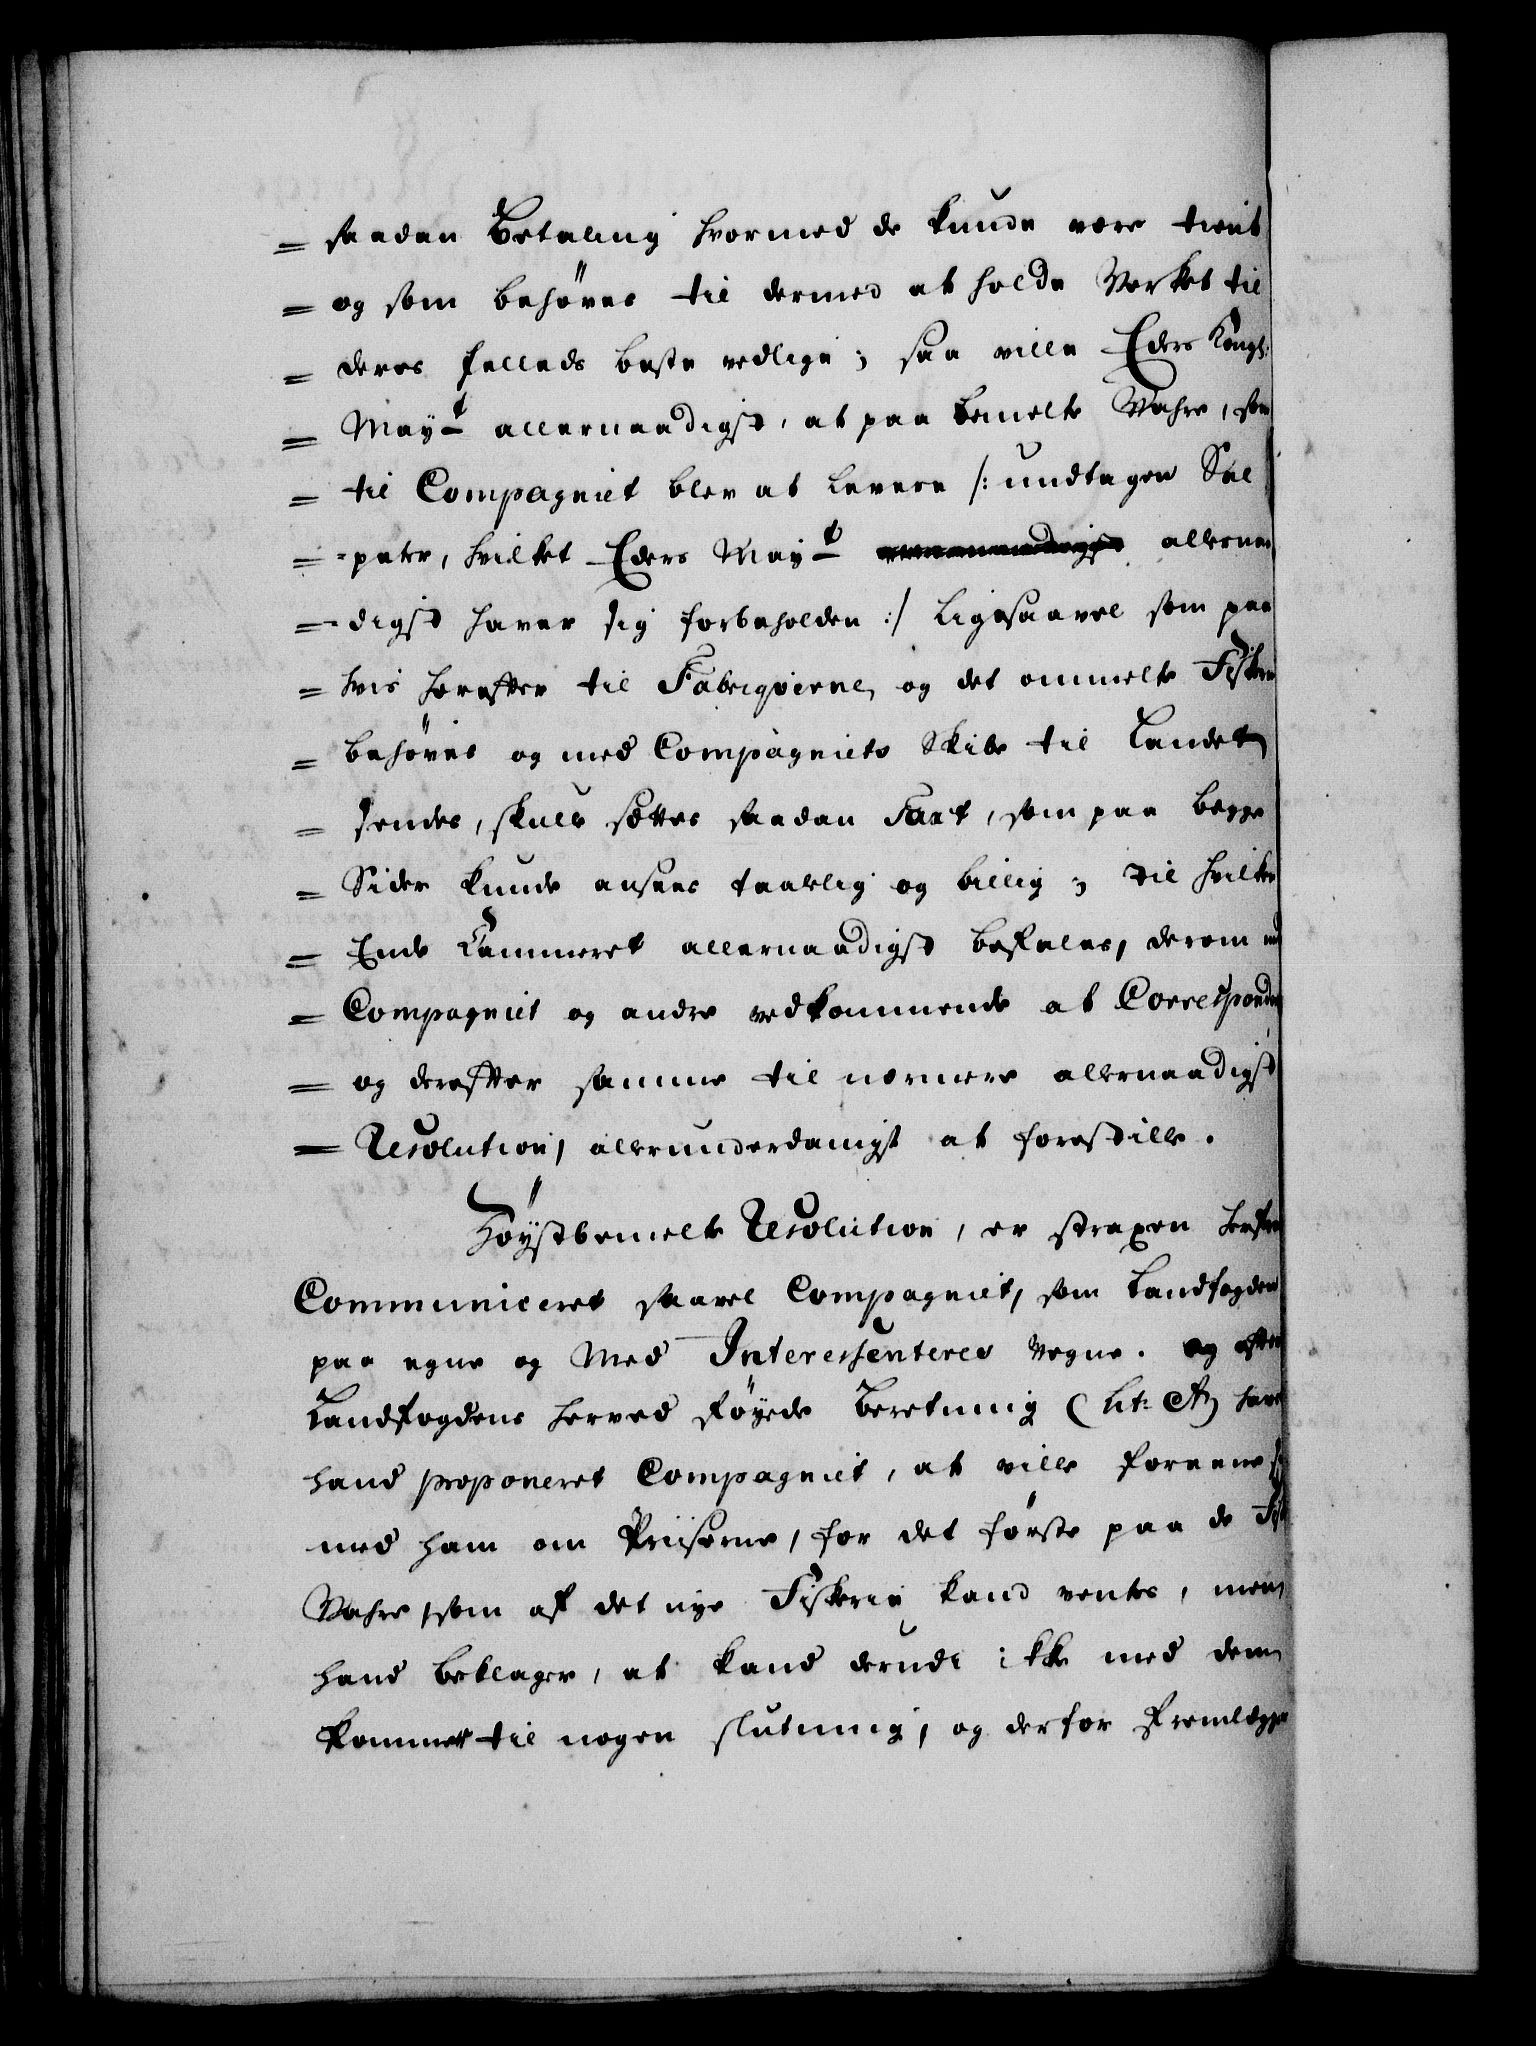 = saadan Betaling hvormed de kunde være tient
= og som behøves til dermed at holde Verket til
= deres fælleds beste vedlige; saa ville Eders Kongl:
= May:t allernaadigst, at paa bemelte Vahre, som
= til Compagniet blev at levere /: undtagen Sal
= -peter, hvilket Eders May:t allernaa
= -digst haver sig forbeholden :/ ligesaavel som paa
= hvis herefter til Fabriqverne, og det ommelte Fiskerie
= behøves og med Compagniets Skibe til Landet
= sendes, skulle settes saadan Taxt, som paa begge
= Sider kunde ansees taalelig og billig; til hvilken
= Ende Cammeret allernaadigst befales, derom med
= Compagniet og andre vedkommende at Correspondere
= og derefter samme til nærmere allernaadigst
= Resolution, allerunderdanigst at forestille.
Høystbemelte Resolution, er straxen herfra
Communiceret saavel Compagniet, som Landfogden
paa egne og Med Interessenteres Vegne. og efter
Landfogdens herved føyede Beretning (Lit: A) haver
hand proponeret Compagniet, at ville foreene sig
med ham om Priiserne, for det første paa de Fisk
Vahre, som af det nye Fiskerie kand ventes, men
hand beklager, at kand derudi ikke med dem
kommet til nogen slutning, og derfor fremlegger